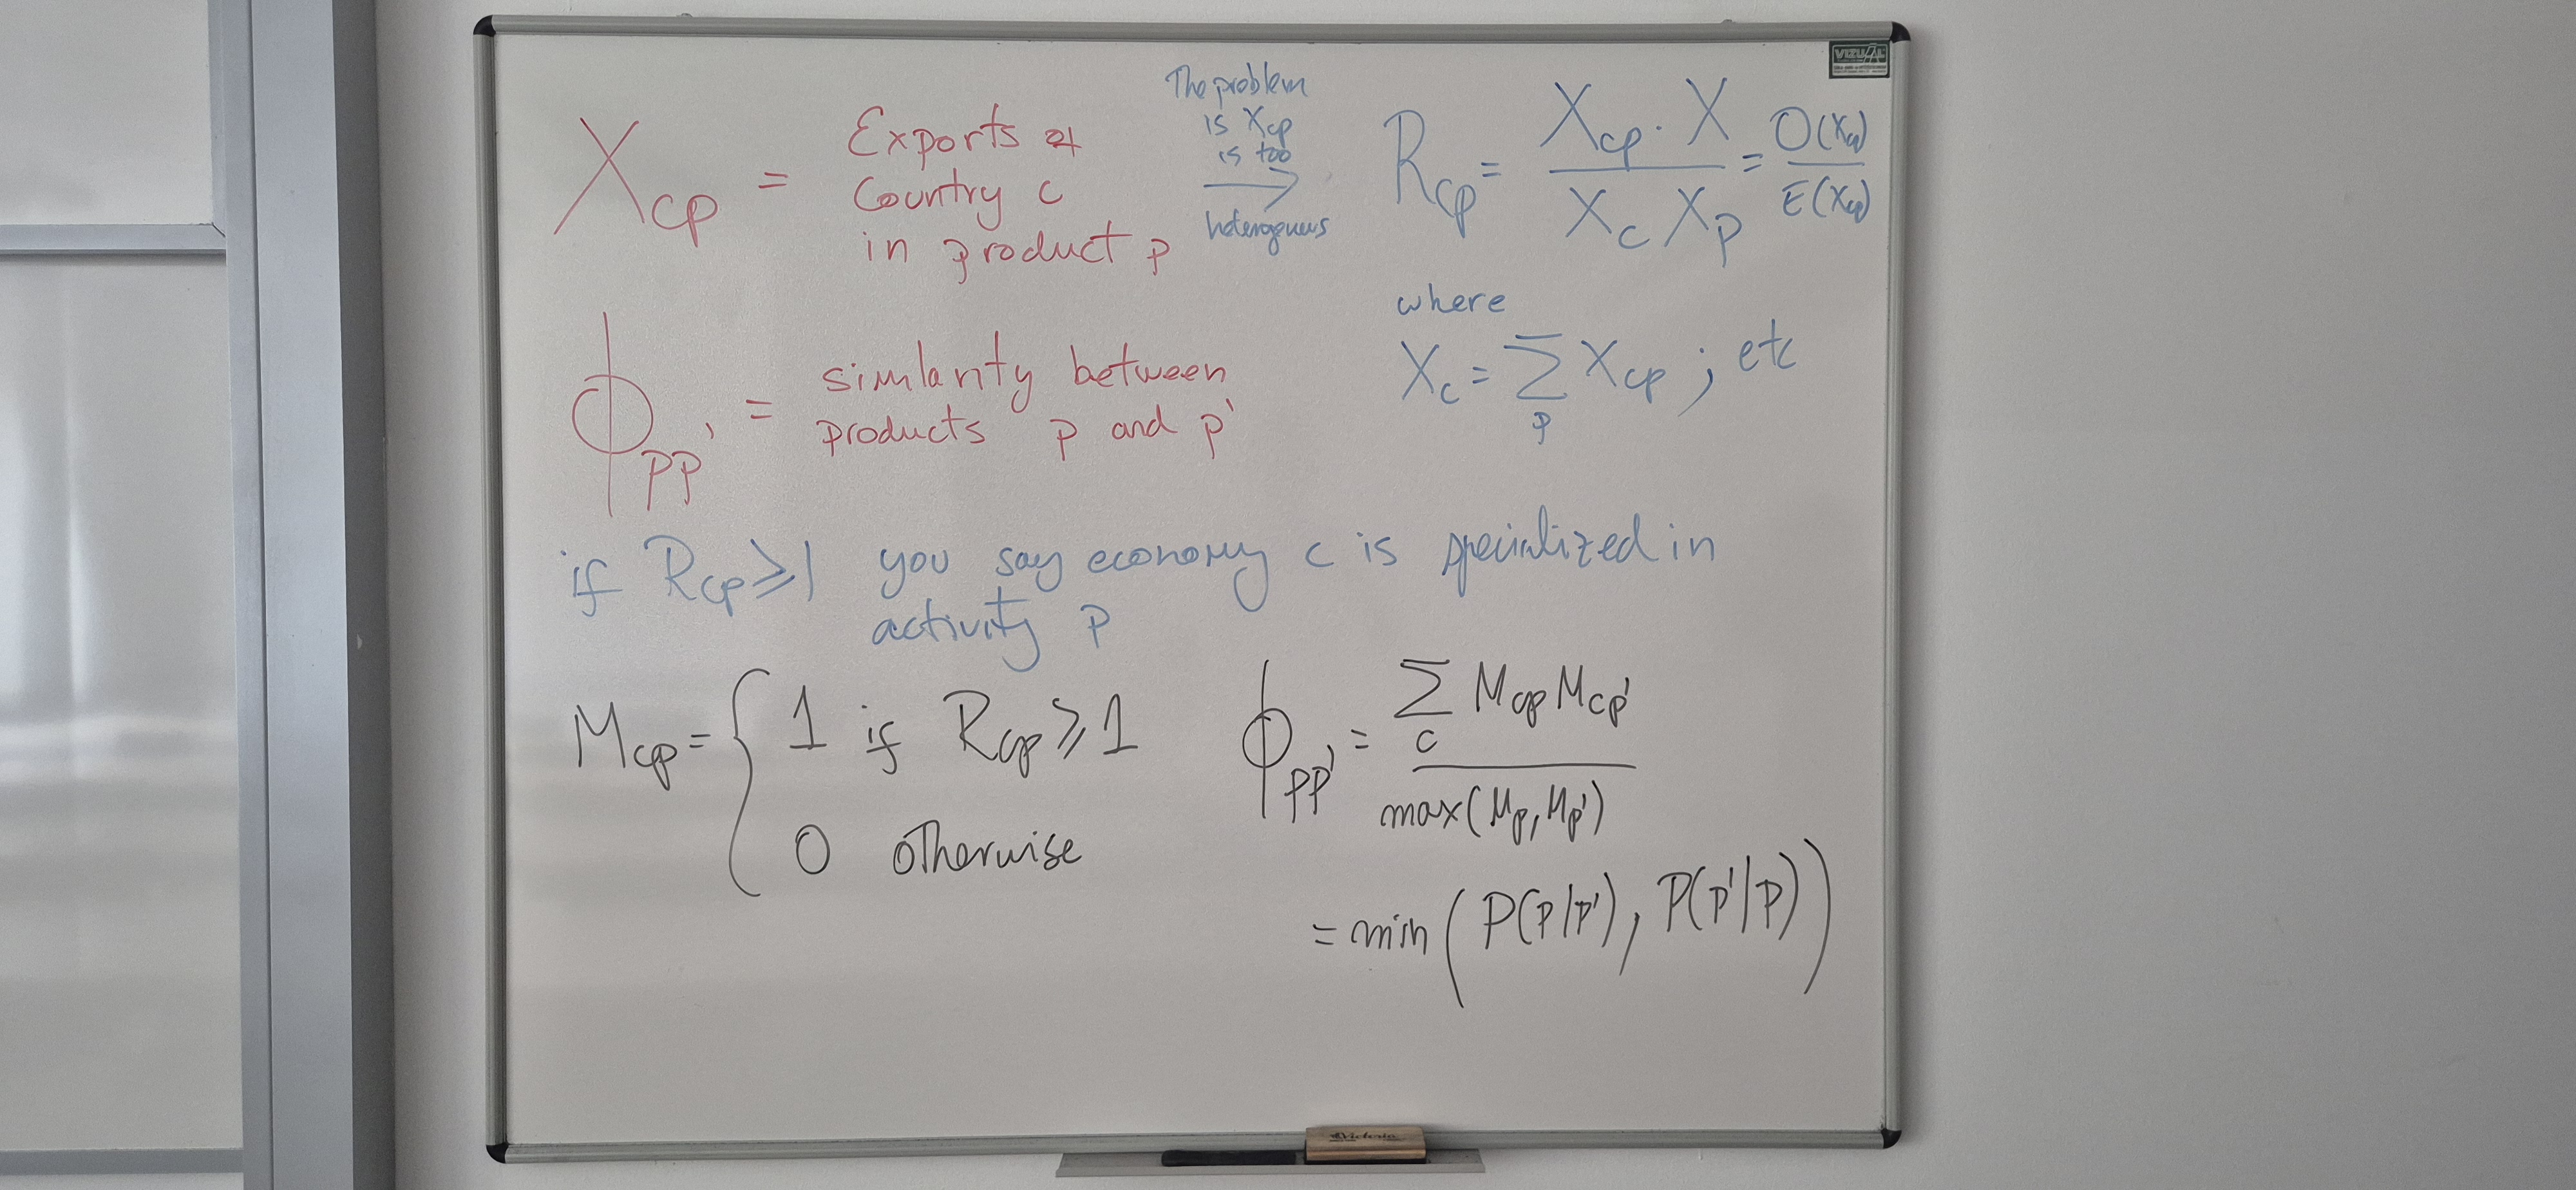 X_cp = Exports of
Country c
in product p
The problem
is X_cp
is too
→
heterogenous
R_cp = (X_cp · X) / (X_c X_p) = O(X_cp) / E(X_cp)
where
X_c = ∑_p X_cp ; etc
ϕ_pp' = similarity between
products p and p'
if R_cp ⩾ 1 you say economy c is specialized in
activity p
M_cp = { 1 if R_cp ⩾ 1
0 otherwise
ϕ_pp' = (∑_c M_cp M_cp') / max(M_p, M_p')
= min(P(p|p'), P(p'|p))
VIZUAL
Victoria